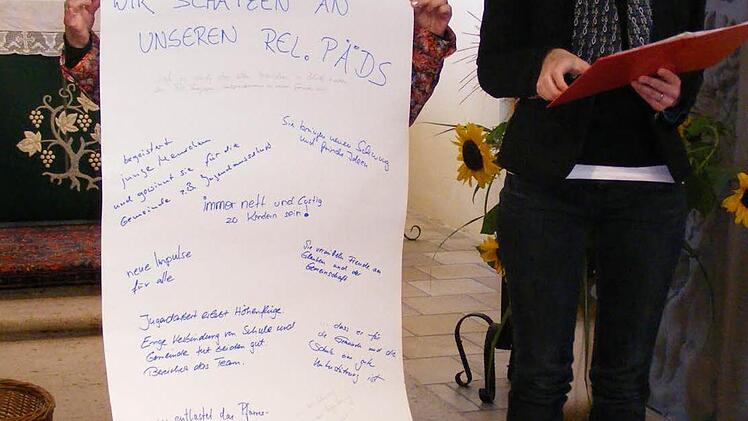 WIR SCHÄTZEN AN
UNSEREN REL. PÄDS
begeistert
junge Menschen
und gewinnt sie für die
Gemeinde z.B. Jugendausschuß
Sie bringen neuen Schwung
und frische Ideen
immer nett und lustig
zu Kindern sein!
neue Impulse
für alle
Sie vermitteln Freude am
Glauben und der
Gemeinschaft
Jugendarbeit erlebt Höhenflüge.
Enge Verbindung von Schule und
Gemeinde tut beiden gut.
Bereichert das Team.
... dass es für
die Gemeinde und die
Schule eine gute
Unterstützung ist
entlastet das Pfarr-